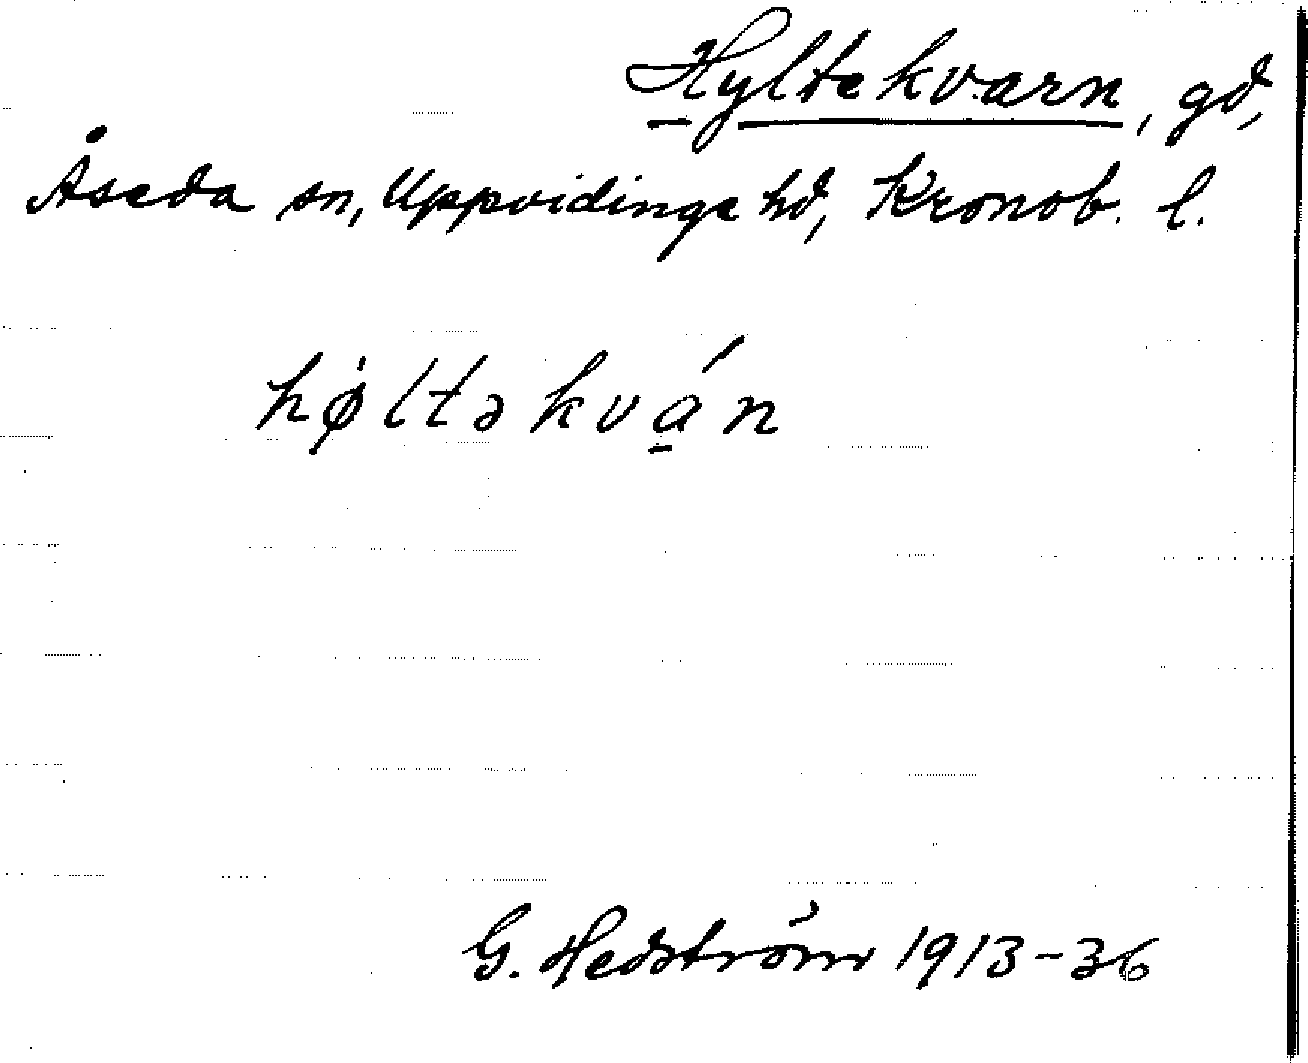 Hyltekvarn, gd,
Åseda sn, Uppvidinge hd, Kronob. l.
hø̀ltəkvá̠n
G. Hedström 1913-36